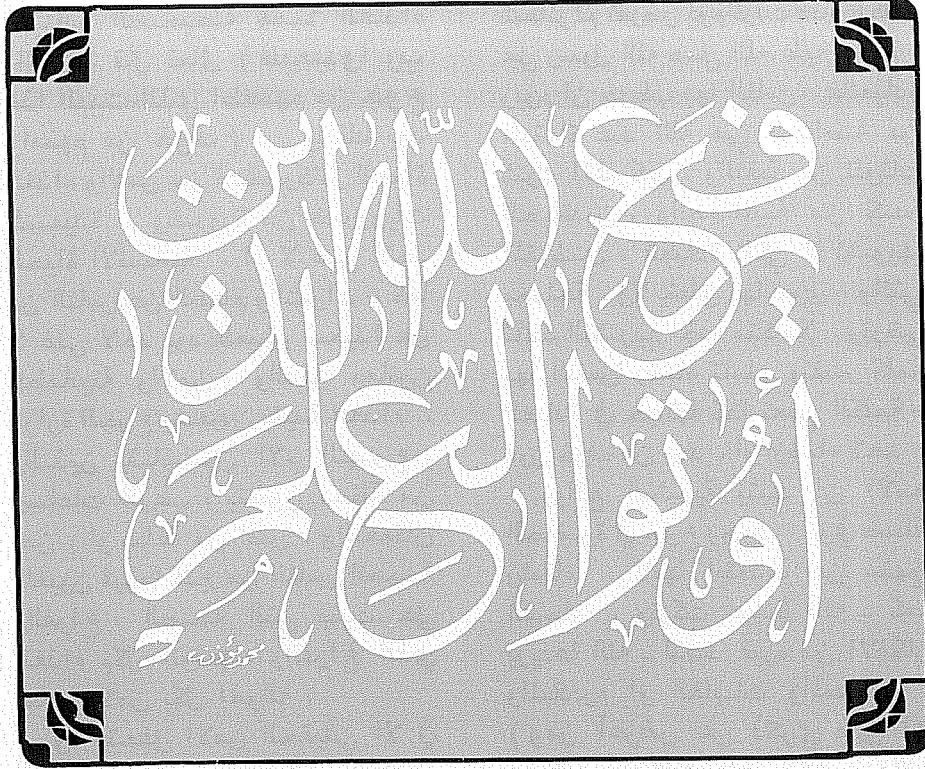 يرفع الله الذين
أوتوا العلم